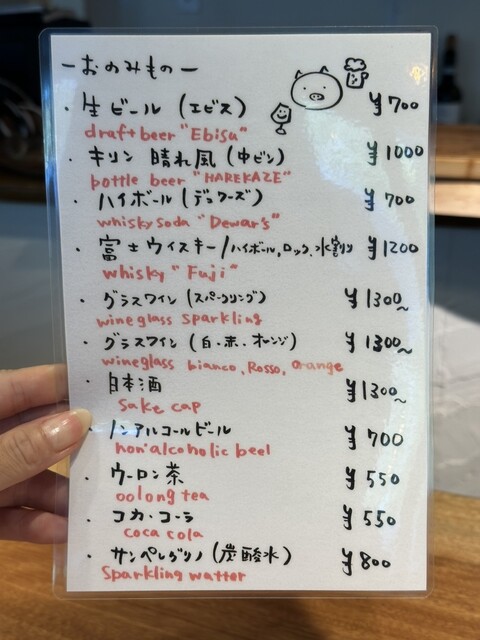 ーおのみものー
・生ビール（エビス） ¥700
draft beer "Ebisu"
・キリン 晴れ風（中ビン） ¥1000
bottle beer "HAREKAZE"
・ハイボール（デュワーズ） ¥700
whisky soda "Dewar's"
・富士ウイスキー/ハイボール,ロック,水割り ¥1200
whisky "Fuji"
・グラスワイン（スパークリング） ¥1300~
wineglass sparkling
・グラスワイン（白・赤・オレンジ） ¥1300~
wineglass bianco, Rosso, orange
・日本酒 ¥1300~
Sake cap
・ノンアルコールビール ¥700
non·alcoholic beel
・ウーロン茶 ¥550
oolong tea
・コカ・コーラ ¥550
coca cola
・サンペレグリノ（炭酸水） ¥800
Sparkling watter